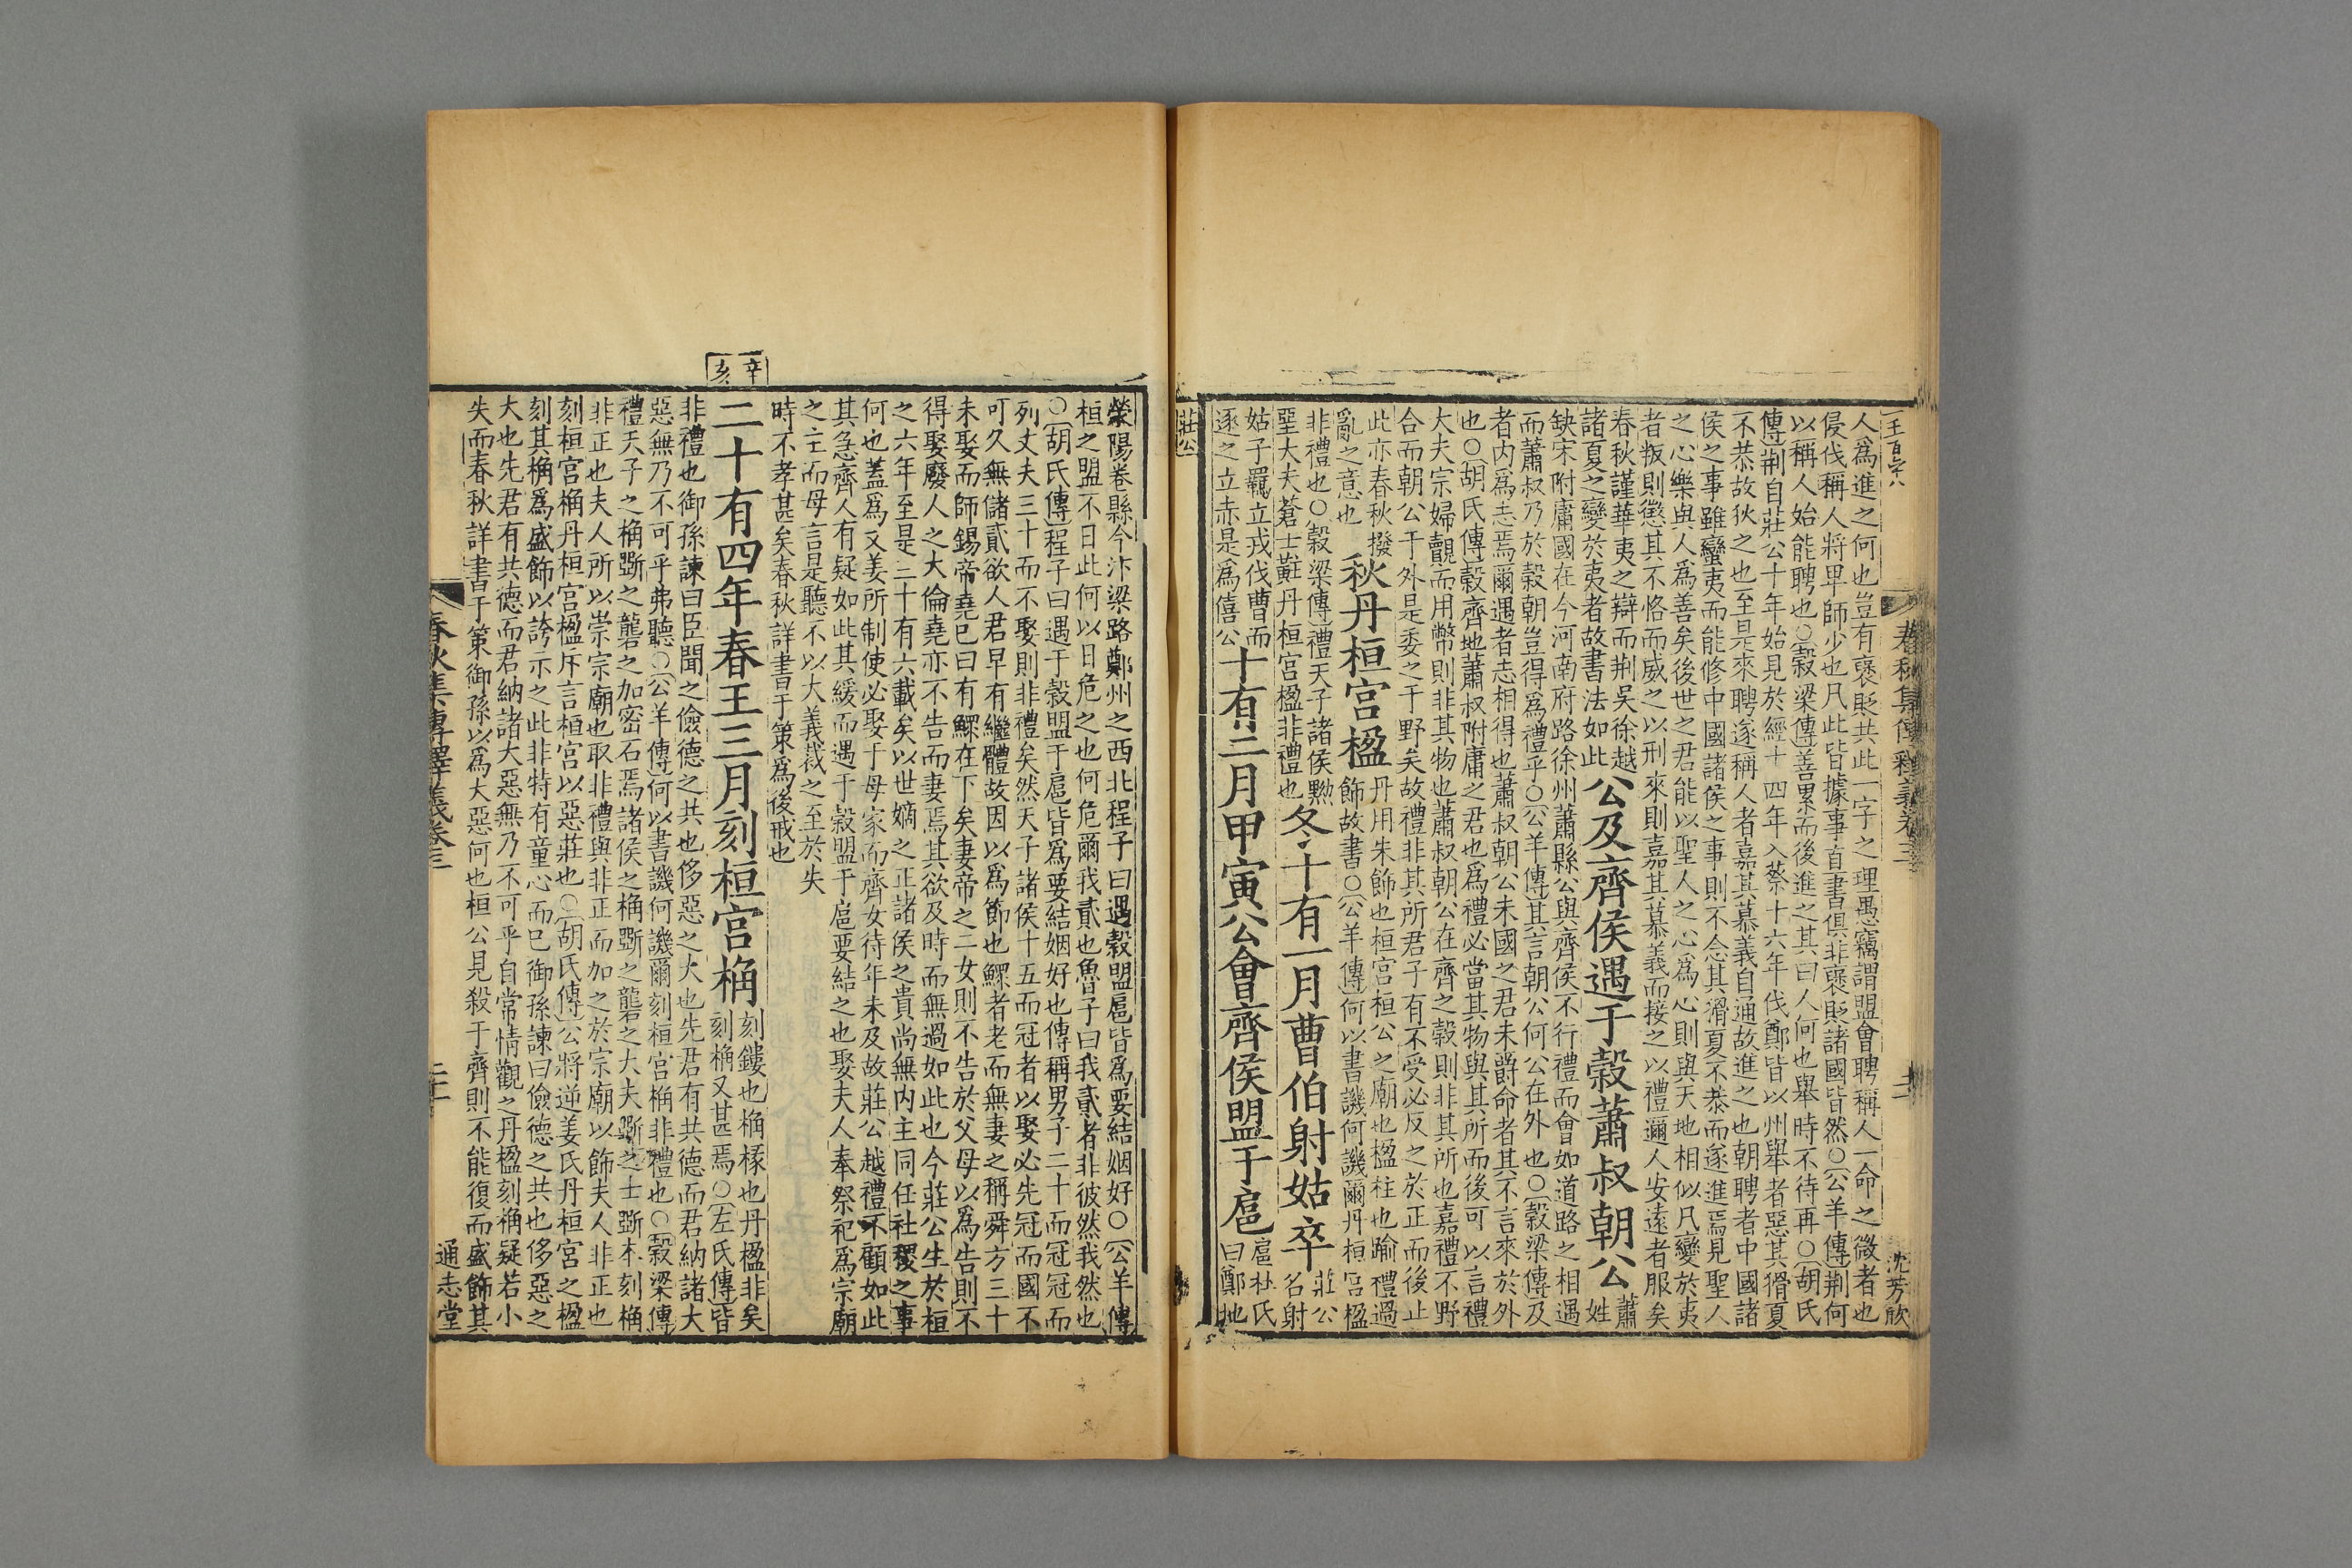 春秋集傳釋義卷三
沈芳欣
人爲進之何也豈有褒貶共此一字之理愚竊謂盟會聘稱人一命之微者也
侵伐稱人將卑師少也凡此皆據事直書俱非褒貶諸國皆然○公羊傳荆何
以稱人始能聘也○穀梁傳善累而後進之其曰人何也舉時不待再○胡氏
傳荆自莊公十年始見於經十四年入蔡十六年伐鄭皆以州舉者惡其猾夏
不恭故狄之也至是來聘遂稱人者嘉其慕義自通故進之也朝聘者中國諸
侯之事雖蠻夷而能修中國諸侯之事則不念其猾夏不恭而遂進焉見聖人
之心樂與人爲善矣後世之君能以聖人之心爲心則與天地相似凡變於夷
者叛則懲其不恪而威之以刑來則嘉其慕義而接之以禮邇人安遠者服矣
春秋謹華夷之辯而荆吳徐越
諸夏之變於夷者故書法如此
公及齊侯遇于穀蕭叔朝公
蕭
姓
缺宋附庸國在今河南府路徐州蕭縣公與齊侯不行禮而會如道路之相遇
而蕭叔乃於穀朝豈得爲禮乎○公羊傳其言朝公何公在外也○穀梁傳及
者内爲志焉爾遇者志相得也蕭叔朝公未國之君未爵命者其不言來於外
也○胡氏傳穀齊地蕭叔附庸之君也爲禮必當其物與其所而後可以言禮
大夫宗婦覿而用幣則非其物也蕭叔朝公在齊之穀則非其所也嘉禮不野
合而朝公于外是委之于野矣故禮非其所君子有不受必反之於正而後止
此亦春秋撥
亂之意也
秋丹桓宮楹
丹用朱飾也桓宮桓公之廟也楹柱也踰禮過
飾故書○公羊傳何以書譏何譏爾丹桓宮楹
非禮也○穀梁傳禮天子諸侯黝
堊大夫蒼士黈丹桓宮楹非禮也
冬十有一月曹伯射姑卒
莊公
名射
姑子羈立戎伐曹而
逐之立赤是爲僖公
十有二月甲寅公會齊侯盟于扈
扈杜氏
曰鄭地
莊公
滎陽卷縣今汴梁路鄭州之西北程子曰遇穀盟扈皆爲要結姻好○公羊傳
桓之盟不日此何以日危之也何危爾我貳也魯子曰我貳者非彼然我然也
○胡氏傳程子曰遇于穀盟于扈皆爲要結姻好也傳稱男子二十而冠冠而
列丈夫三十而不娶則非禮矣然天子諸侯十五而冠者以娶必先冠而國不
可久無儲貳欲人君早有繼體故因以爲節也鰥者老而無妻之稱舜方三十
未娶而師錫帝堯已曰有鰥在下矣妻帝之二女則不告於父母以爲告則不
得娶廢人之大倫堯亦不告而妻焉其欲及時而無過如此也今莊公生於桓
之六年至是三十有六載矣以世嫡之正諸侯之貴尚無内主同任社稷之事
何也蓋爲文姜所制使必娶于母家而齊女待年未及故莊公越禮不顧如此
其急齊人有疑如此其緩而遇于穀盟于扈要結之也娶夫人奉祭祀爲宗廟
之主而母言是聽不以大義裁之至於失
時不孝甚矣春秋詳書于策爲後戒也
辛亥
二十有四年春王三月刻桓宮桷
刻鏤也桷椽也丹楹非矣
刻桷又甚焉○左氏傳皆
非禮也御孫諫曰臣聞之儉德之共也侈惡之大也先君有共德而君納諸大
惡無乃不可乎弗聽○公羊傳何以書譏何譏爾刻桓宮桷非禮也○穀梁傳
禮天子之桷斲之礱之加密石焉諸侯之桷斲之礱之大夫斲之士斲本刻桷
非正也夫人所以崇宗廟也取非禮與非正而加之於宗廟以飾夫人非正也
刻桓宮桷丹桓宮楹斥言桓宮以惡莊也○胡氏傳公將逆姜氏丹桓宮之楹
刻其桷爲盛飾以誇示之此非特有童心而已御孫諫曰儉德之共也侈惡之
大也先君有共德而君納諸大惡無乃不可乎自常情觀之丹楹刻桷疑若小
失而春秋詳書于策御孫以爲大惡何也桓公見殺于齊則不能復而盛飾其
春秋集傳釋義卷三
通志堂